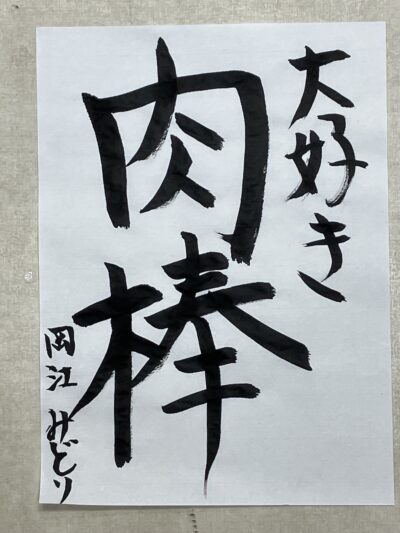 大好き
肉棒
岡江みどり